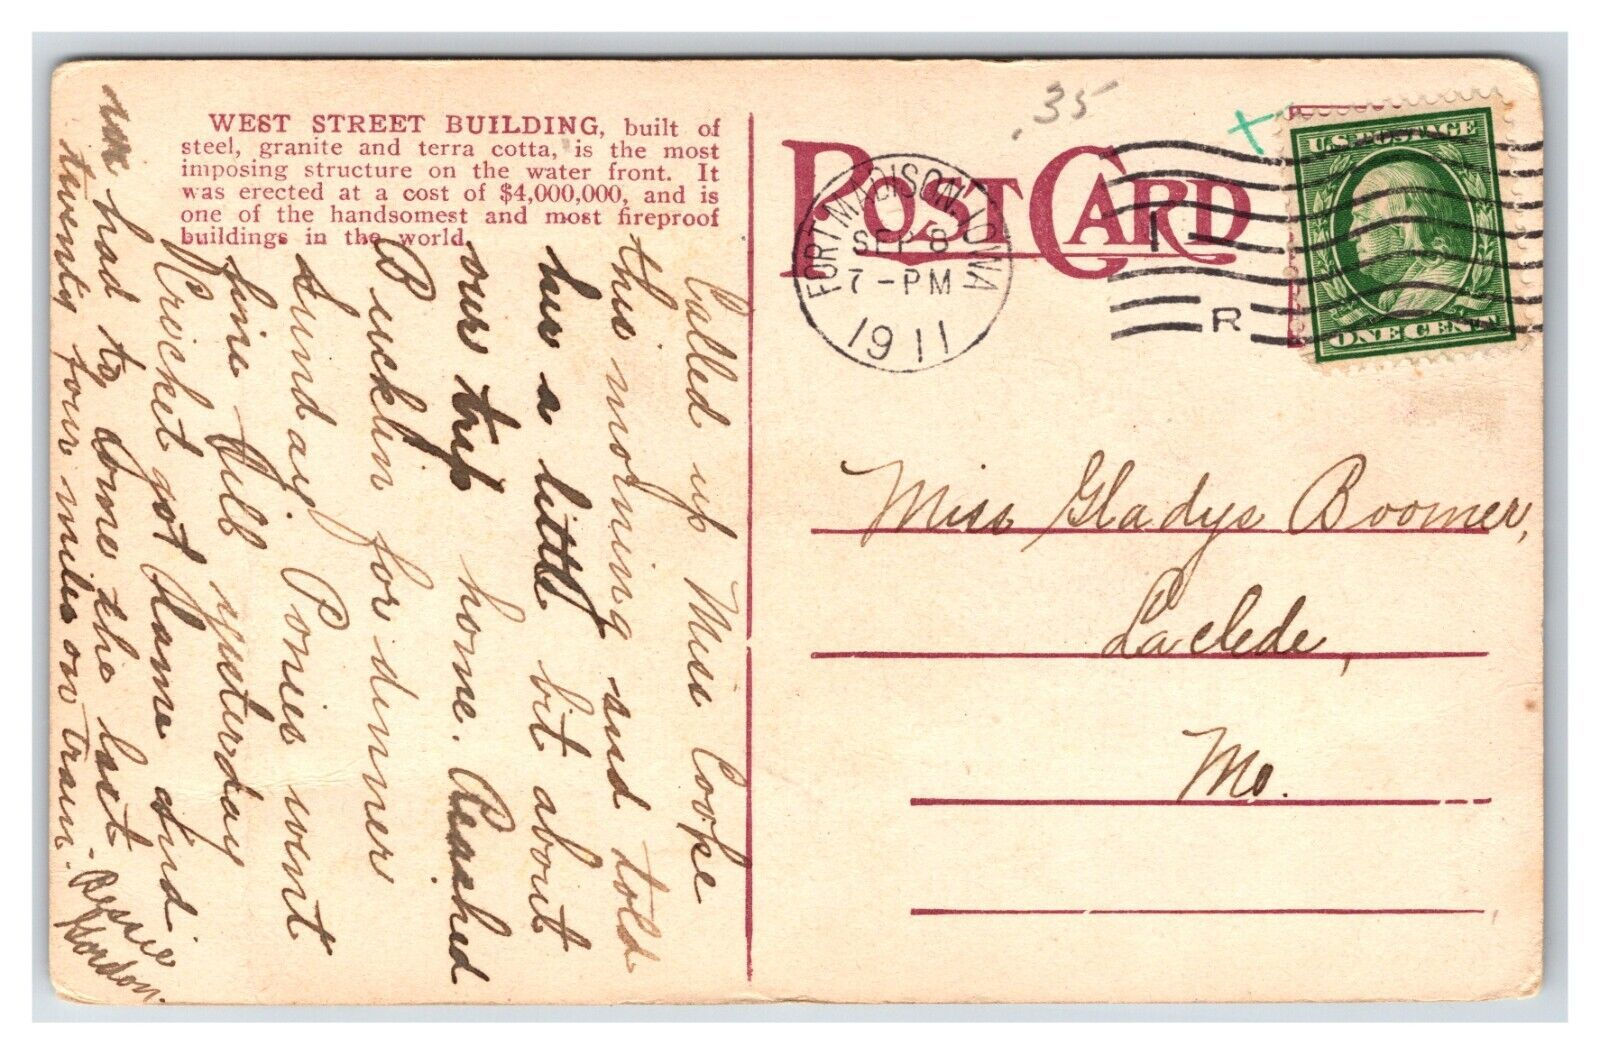 WEST STREET BUILDING, built of
steel, granite and terra cotta, is the most
imposing structure on the water front. It
was erected at a cost of $4,000,000, and is
one of the handsomest and most fireproof
buildings in the world.
POST CARD
.35
FORT MADISON, IOWA
SEP 8
7-PM
1911
R
U.S. POSTAGE
ONE CENT
Miss Gladys Boomer,
Laclede,
Mo.
Called up Miss Cooke
this morning and told
her a little bit about
our trip home. Reached
Bucklin for dinner
Sunday. Ponies went
fine till yesterday
Cricket got lame and
we had to come the last
twenty four miles on train.-
Bessie
Hordon.